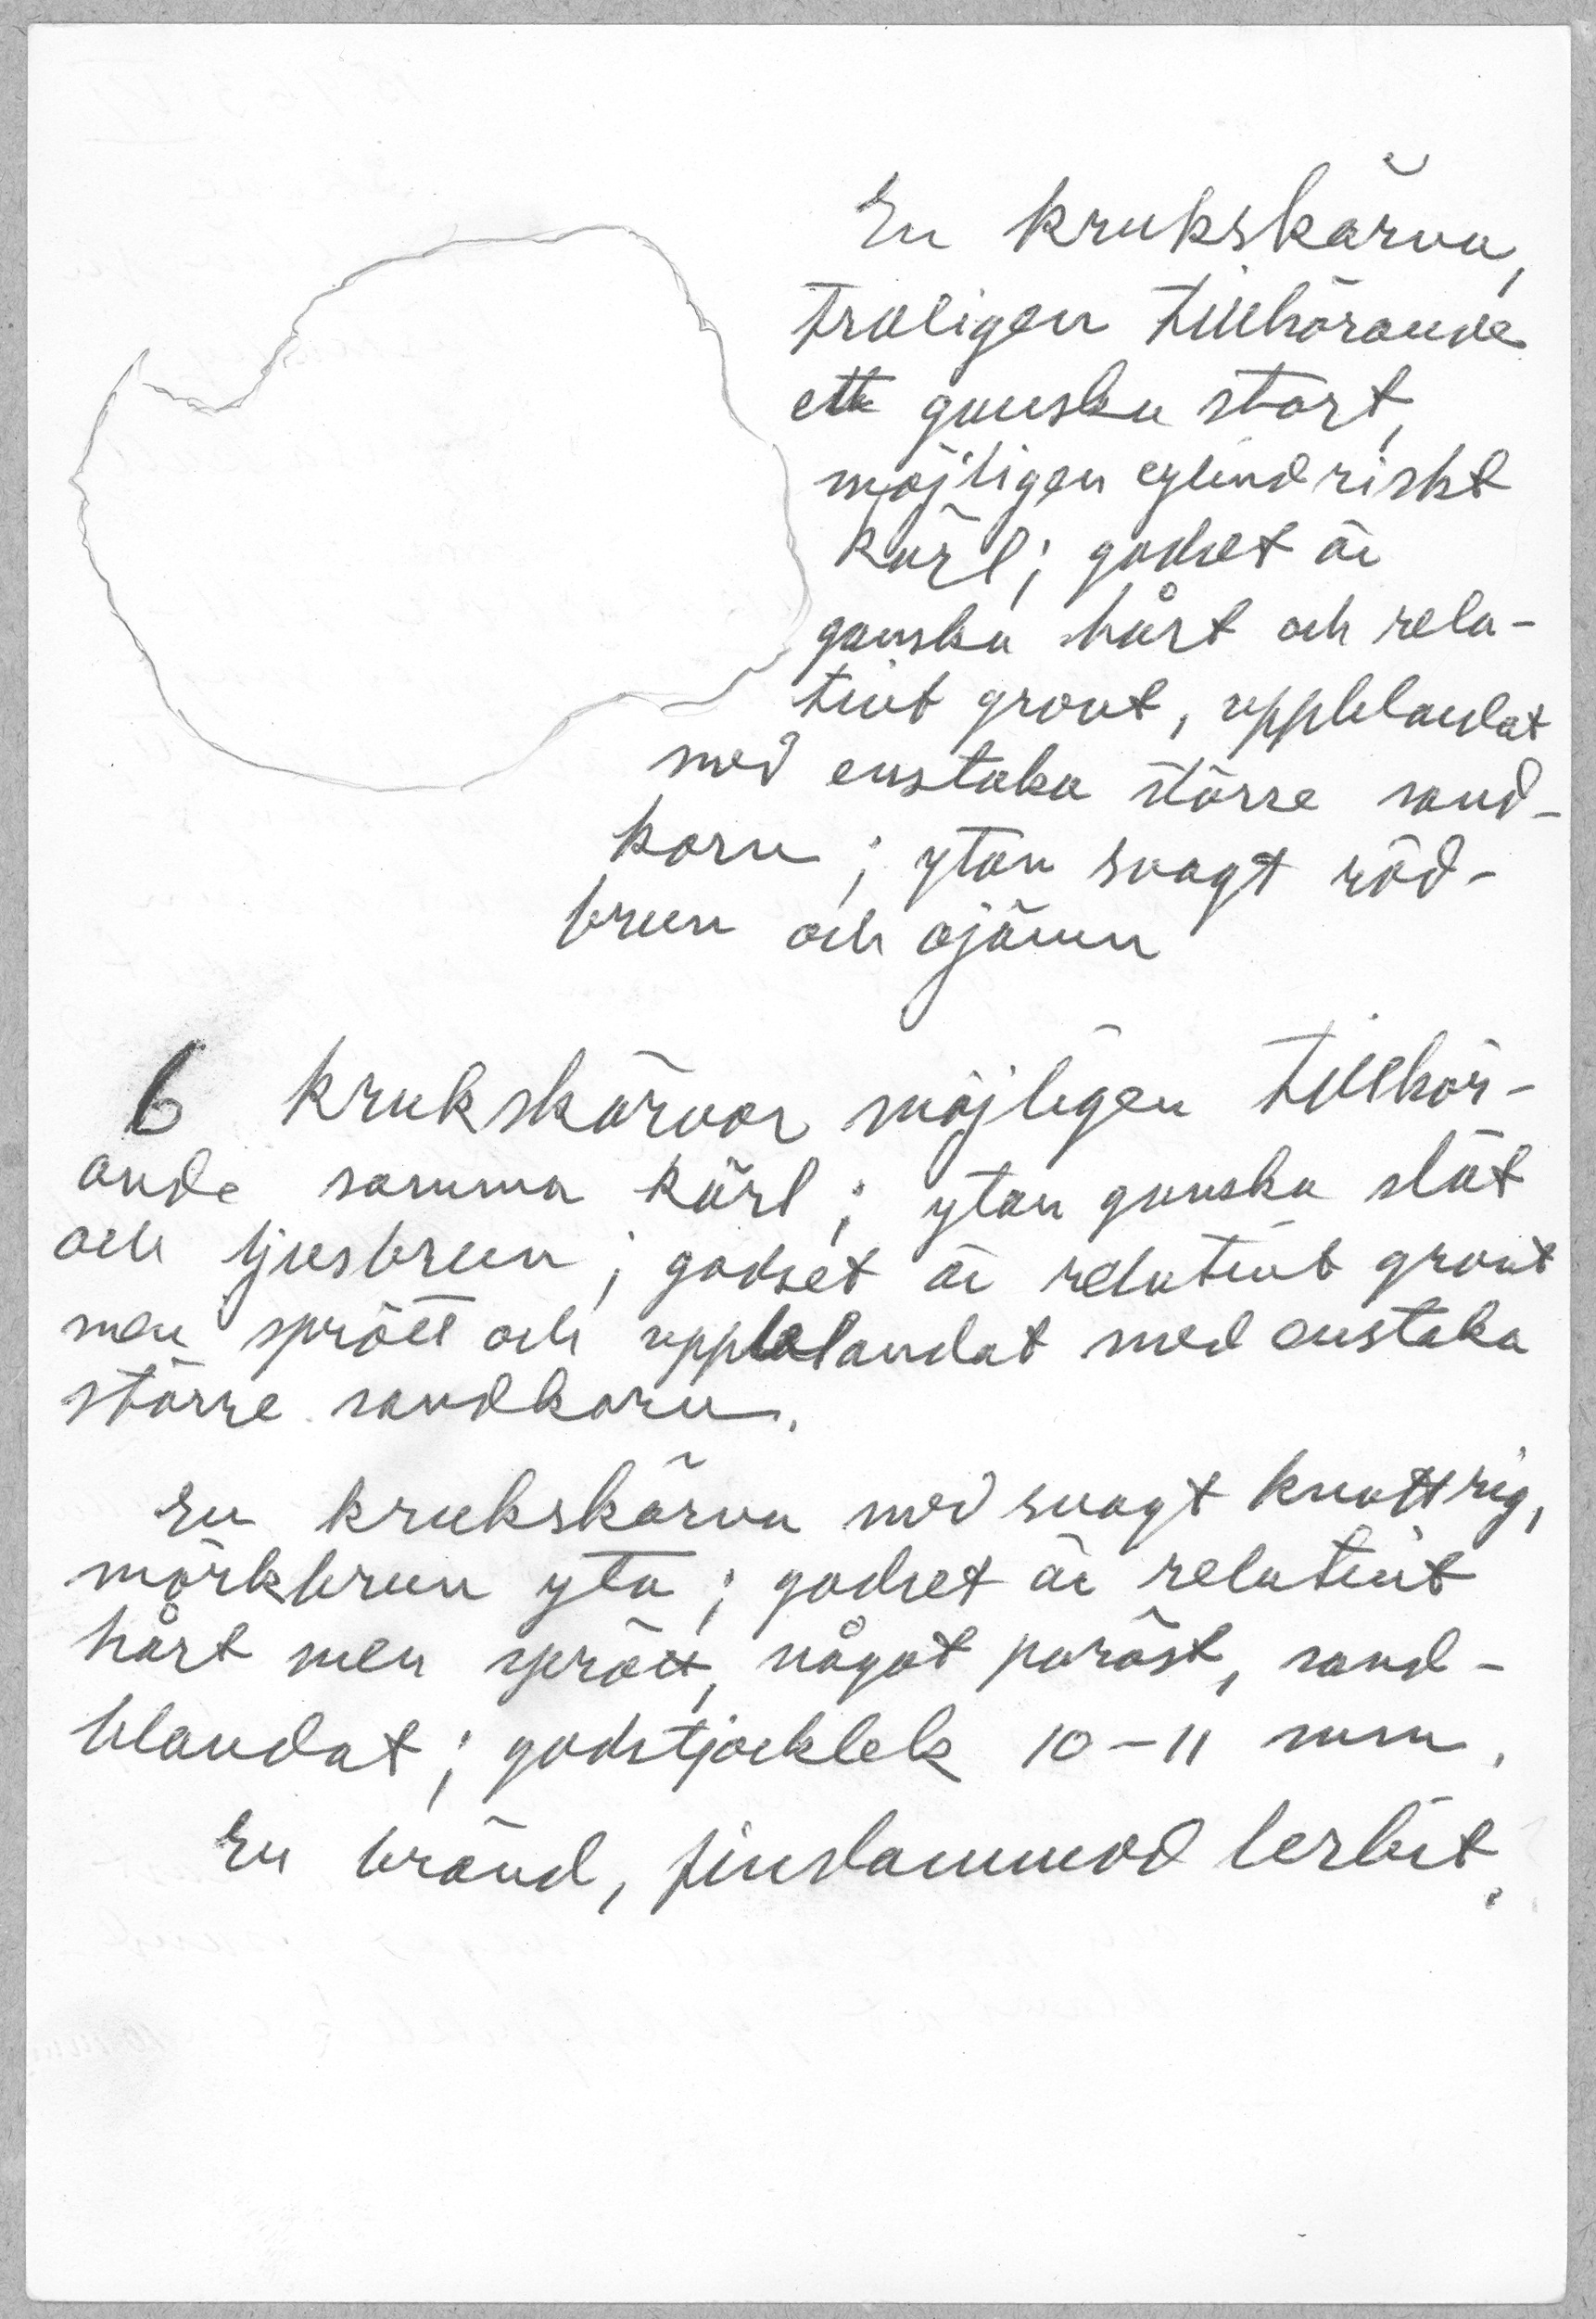 En krukskärva,
troligen tillhörande
ett ganska stort,
möjligen cylindriskt
kärl; godset är
ganska hårt och rela-
tivt grovt, uppblandat
med enstaka större sand-
korn; ytan svagt röd-
brun och ojämn
6 krukskärvor möjligen tillhör-
ande samma kärl; ytan ganska slät
och ljusbrun; godset är relativt grovt
men sprött och uppblandat med enstaka
större sandkorn.
En krukskärva med svagt knottrig,
mörkbrun yta; godset är relativt
hårt men sprött, något poröst, sand-
blandat; godstjocklek 10-11 mm.
En bränd, finslammad lerbit.